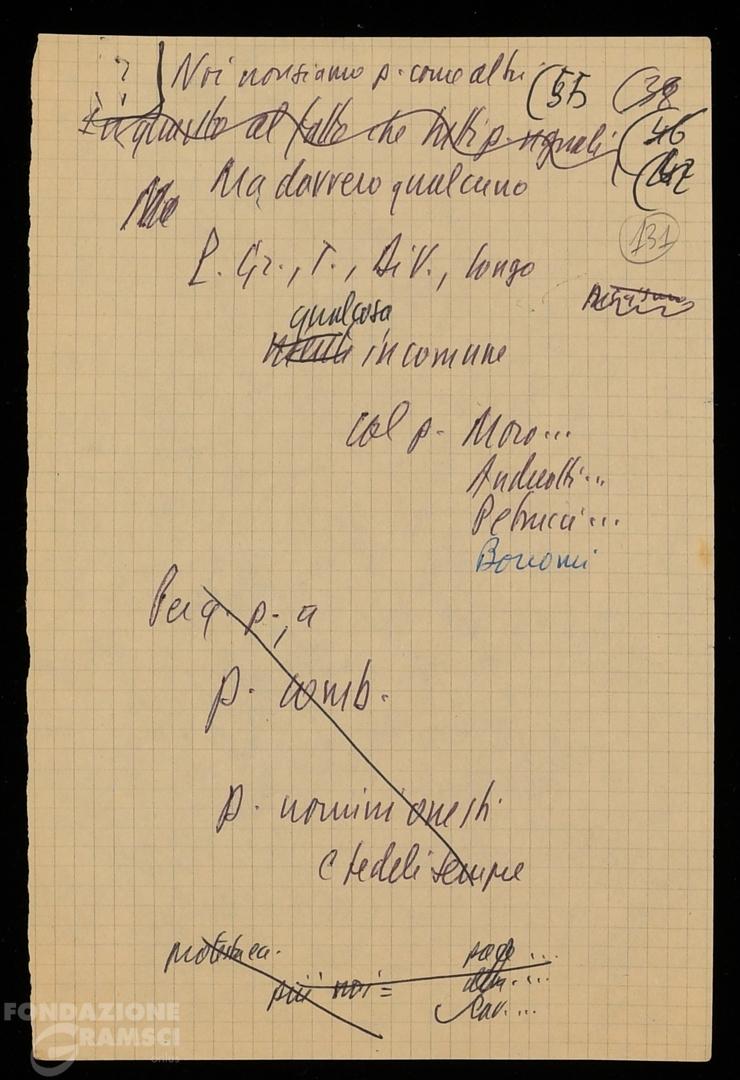 ? Noi non siamo p. come altri (55 (38
In quanto al fatto che tutti p. uguali (46
(47
Ma Ma davvero qualcuno
131
P. Gr., T., Di V., Longo
qualcosa
in comune
col p. Moro...
Andreotti...
Petrucci...
Bonomi
Per q. p., a
p. comb.
p. uomini onesti
e fedeli sempre
più noi =
Lav....
FONDAZIONE
GRAMSCI
onlus